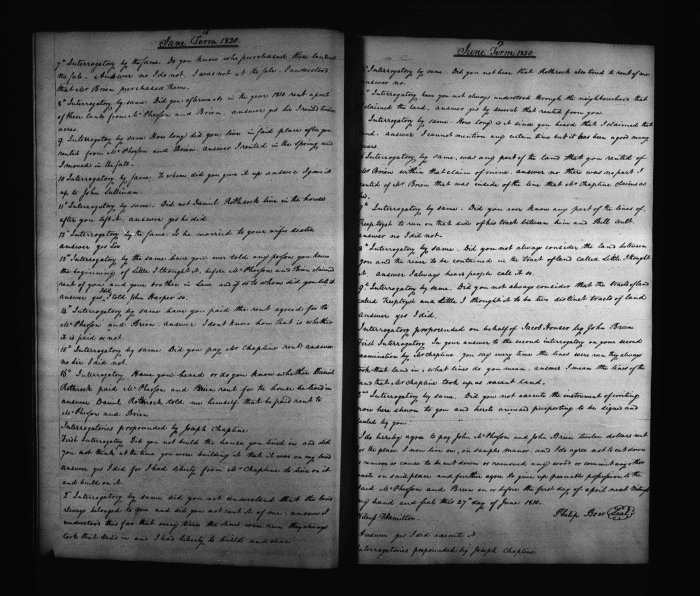 June Term 1820
7th Interrogatory by the same. Do you know who purchased these lands at
the sale. Answer no I do not. I was not at the sale. I understood
that Mr Brien purchased them.
8th Interrogatory by same. Did you afterwards in the year 1810 rent a part
of these lands from McPherson and Brien. answer yes Sir I rented
acres.
9 Interrogatory by same. How long did you live in said place after you
rented from McPherson and Brien. answer I rented in the Spring and
I moved in the fall.
10 Interrogatory by same. To whom did you give it up answer I gave it
up to John Sullivan.
11th Interrogatory by same. Did not Daniel Rothrock live in the house
after you left it. answer yes he did
12th Interrogatory by the same. Is he married to your wifes sister
answer yes Sir
13th Interrogatory by the same have you ever told any person you knew
the beginning of Little I thought it, before McPherson and Brien claimed
rent of you and your brother in law and if so to whom did you tell it
answer yes, I told John Harper so.
14th Interrogatory by same have you paid the rent agreed for to
McPherson and Brien. answer I dont know how that is whether
it is paid or not.
15th Interrogatory by same Did you pay Mr Chapline rent answer
no Sir I did not.
16th Interrogatory Have you heard or do you know whether Daniel
Rothrock paid McPherson and Brien rent for the house he lived in
answer Daniel Rothrock told me himself that he paid rent to
McPherson and Brien
Interrogatories propounded by Joseph Chapline
First Interrogatory Did you not build the house you lived in and did
you not think at the time you were building it that it was on my land
answer yes I did for I had liberty from Mr Chapline to live on it
and build on it.
2d Interrogatory by same did you not understand that the land
always belonged to you and did you not rent it of me. answer I
understood this far that every time the lines were run they always
took that land in and I had liberty to build and clear
June Term 1820
Interrogatory by same. Did you not hear that Rothrock also tend to rent of me
answer no.
Interrogatory have you not always understood through the neighbourhood that
I claimed the land. answer yes by several that rented from you.
Interrogatory by same. How long is it since you heard that I claimed that
land. answer I cannot mention any certain time but it has been a good many
years.
Interrogatory by same. was any part of the land that you rented of
McBrien within that claim of mine. answer no there was no part I
rented of Mr Brien that was inside of the line that Mr Chapline claims as
his.
7th Interrogatory by same. Did you ever know any part of the lines of
Keeptryst to run on that side of his track between him and Bell Ault.
answer no I did not.
8th Interrogatory by same. Did you not always consider the land between
you and the river to be contained in the tract of land called Little I thought
it. answer I always heard people call it so.
9th Interrogatory by same. Did you not always consider that the tracts of land
called Keeptryst and Little I thought it to be two distinct tracts of land
answer yes I did.
Interrogatory propounded on behalf of Jacob Houser by John Brien
First Interrogatory. In your answer to the second interrogatory on your second
examination by Mr Chapline, you say every time the lines were run they always
took that land in, what lines do you mean. answer I mean the lines of the
land that Mr Chapline took up as vacant land.
2nd Interrogatory by same. Did you not execute the instrument of writing
now here shewn to you and hereto annexed purporting to be signed and
sealed by you
I do hereby agree to pay John McPherson and John Brien twelve dollars rent
for the place I now live on, in Samples manor and I do agree not to cut down
or remove or cause to be cut down or removed any wood or commit any other
waste on said place and further agree to give up peaceable possession to the
said McPherson and Brien on or before the first day of april next Witness
my hand and seal this 27th day of June 1810.
Witness Hamilton. Philip Boor (Seal)
Answer yes I did execute it
Interrogatories propounded by Joseph Chapline